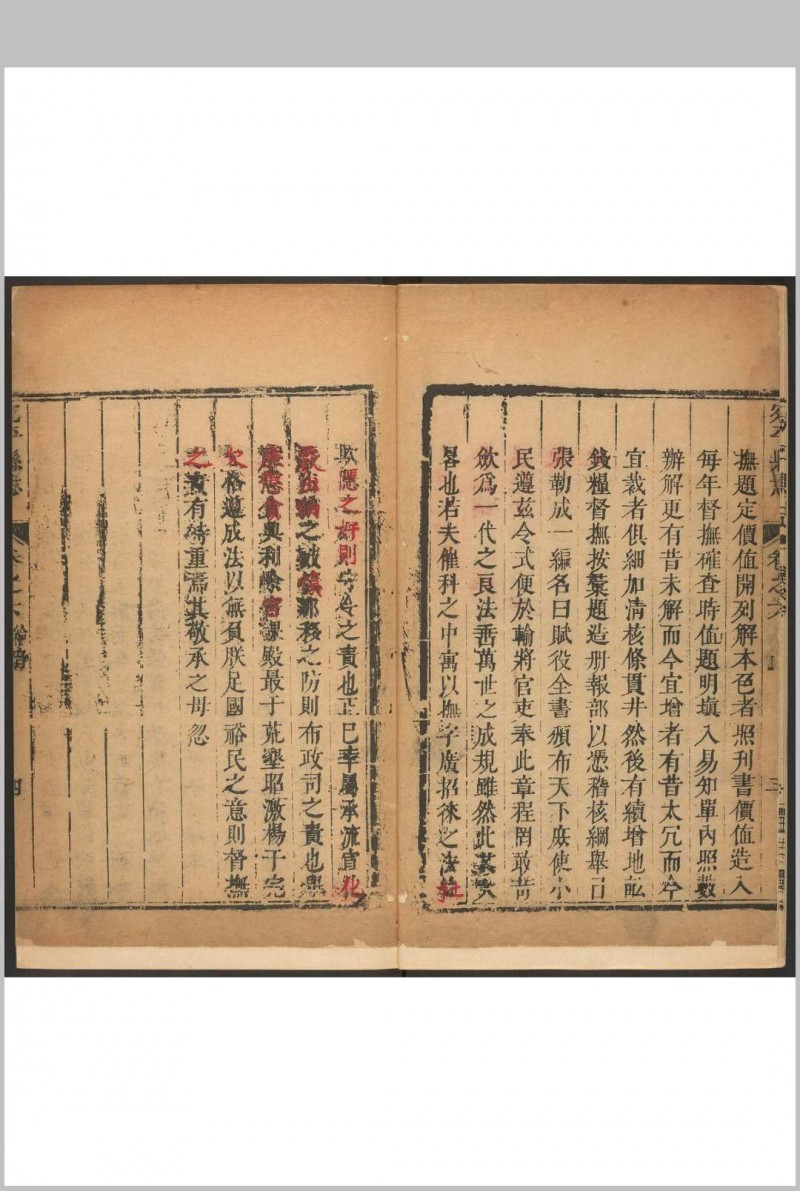 撫題定價值開列解本色者照刊書價值造入
每年督撫確查時值題明塡入易知單內照數
辦解更有昔未解而今宜增者有昔太冗而今
宜裁者俱細加清核條貫井然後有續增地畝
錢糧督撫按彙題造册報部以憑稽核綱舉目
張勒成一編名曰賦役全書頒布天下庶使小
民遵茲令式便於輸將官吏奉此章程罔敢苛
斂爲一代之良法垂萬世之成規雖然此其大
畧也若夫催科之中寓以撫字廣招徠之法
欺隱之奸則守令之責也正己率屬承流宣化
之敝慎那移之防則布政司之責也
廉懲貪興利除害課殿最于荒墾昭激揚于完
欠恪遵成法以無負朕足國裕民之意則督撫
之責有特重焉其敬承之毋忽
平縣志
卷之六
四
三